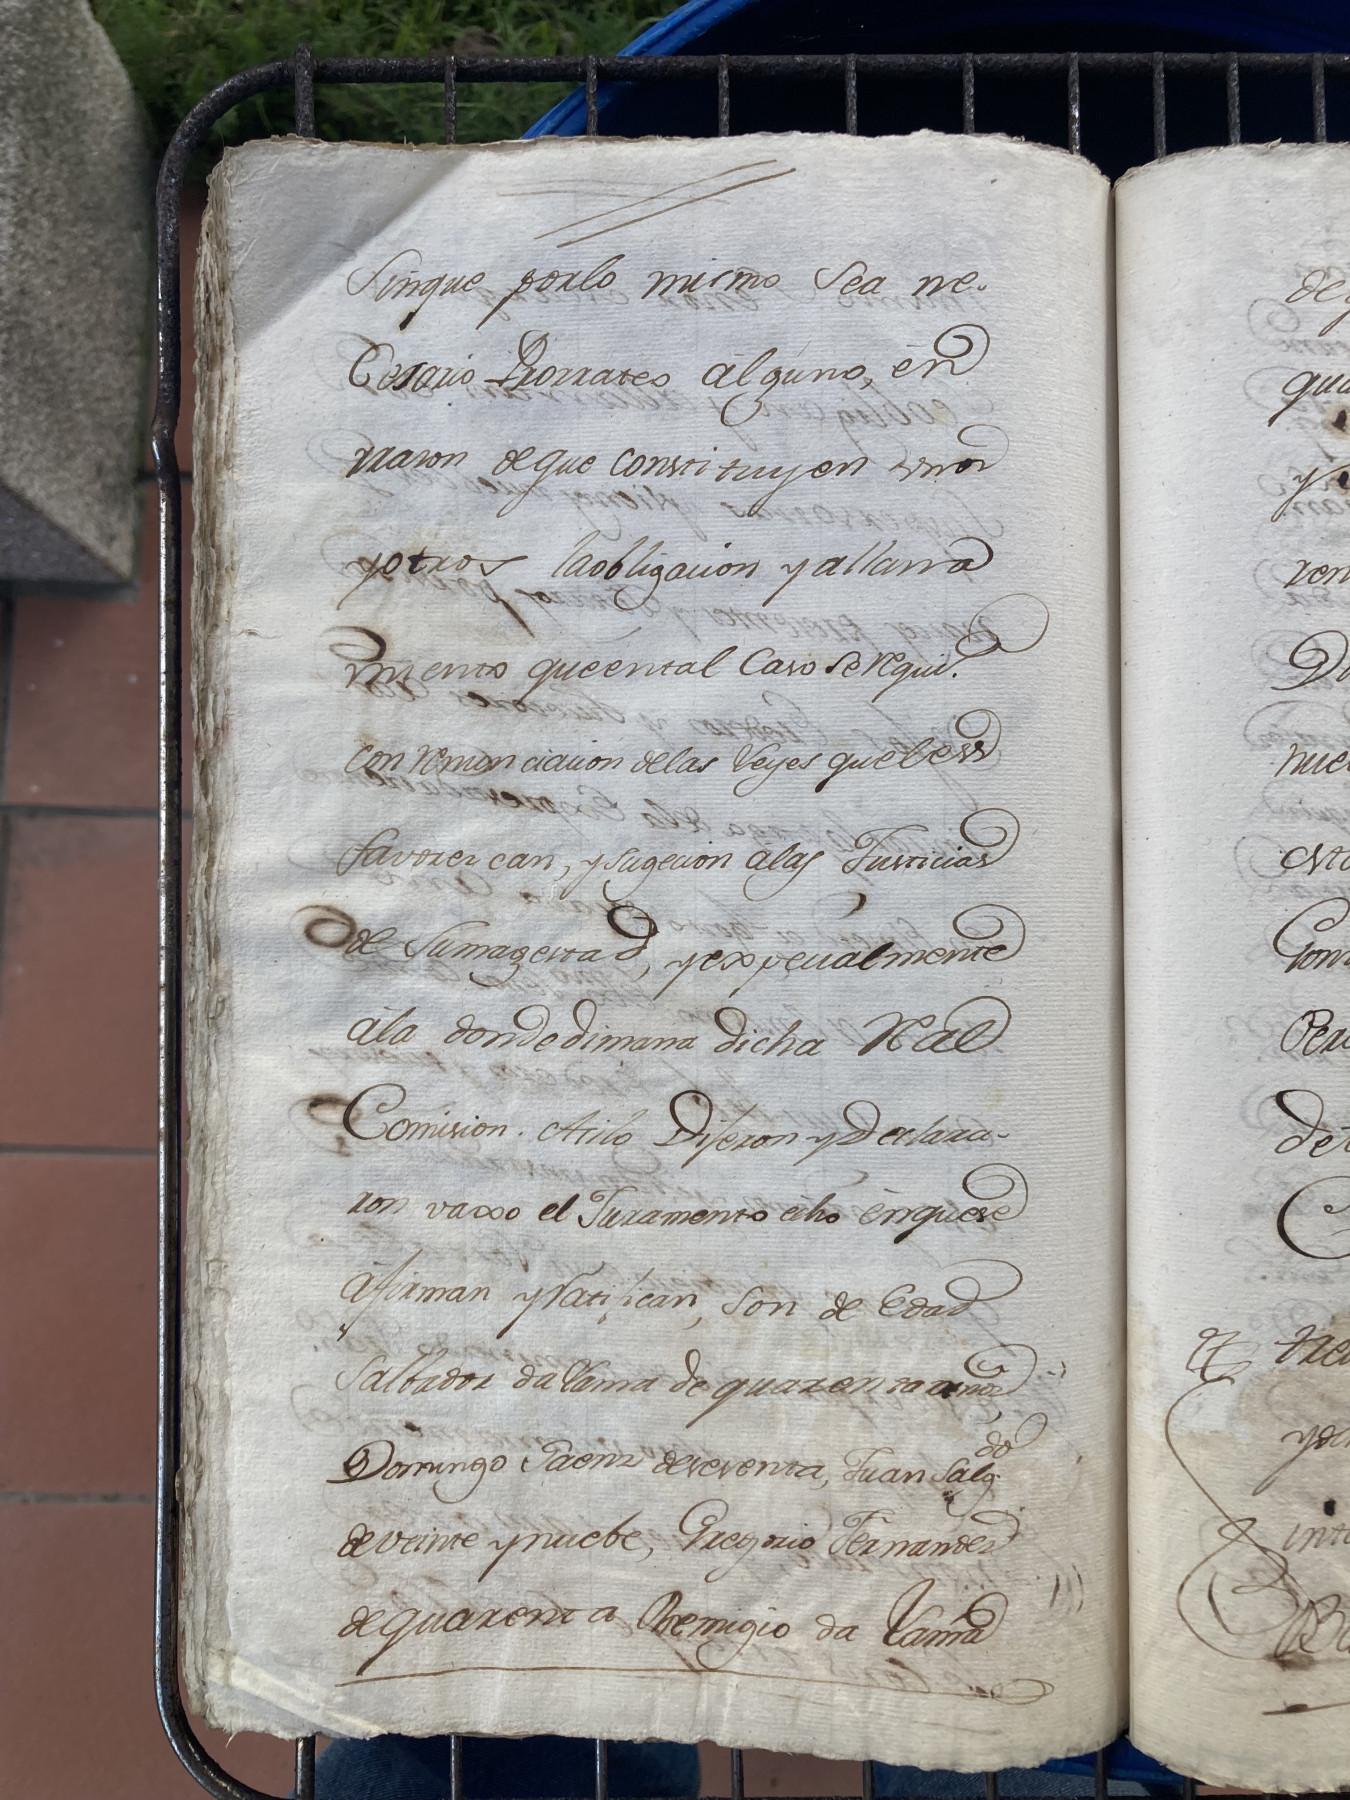 Sinque porlo mismo Sea ne-
Cesario Prorrateo álguno, én
rrason deque constituyen unos
yotros laobligacion yallana
miento queental Caso Serequi.ª
con renunciacion delas Leyes queles
favorezcan, ysugecion alas Justicias
de Sumagestad, yexpecialmente
ála dondedimana dicha Real
Comision. Asilo Dijeron yDeclara-
ron vaxo el Juramento echo énquese
áfirman yRatifican, Son de Edad
Salbador da Vama de quarenta años
Domingo Saenz desesenta, Juan Salgdo
deveinte ynuebe, Gregorio Fernandez
dequarenta Remigio da Vama
deq
qua
y
ren
D
nue
esta
Con
Perc
det
C
trei
yde
inte
Ba